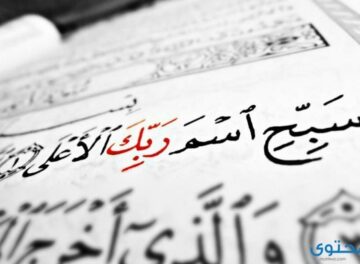 بسم
سَبِّحِ ٱسْمَ رَبِّكَ ٱلْأَعْلَى ١
وَٱلَّذِىٓ أَخْرَجَ
محتوى